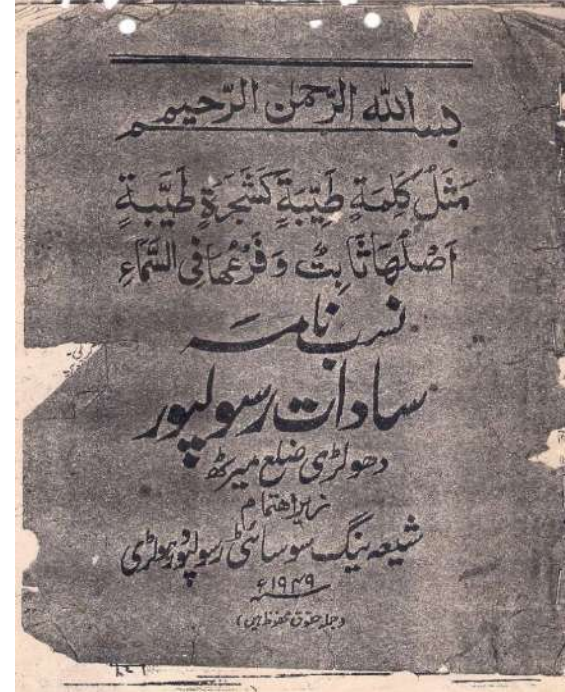 بسم الله الرّحمٰن الرّحیم
مَثَل کَلِمَةٍ طَیِّبَةٍ کَشَجَرَةٍ طَیِّبةٍ
اَصْلُهَا ثَابِتٌ وَفَرْعُهَا فِی السَّمَآءِ
نسب نامہ
سادات رسولپور
دھولڑی ضلع میرٹھ
زیر اہتمام
شیعہ ینگ سوسائٹی رسولپور دھولڑی
۱۹۴۹ء
(جملہ حقوق محفوظ ہیں)